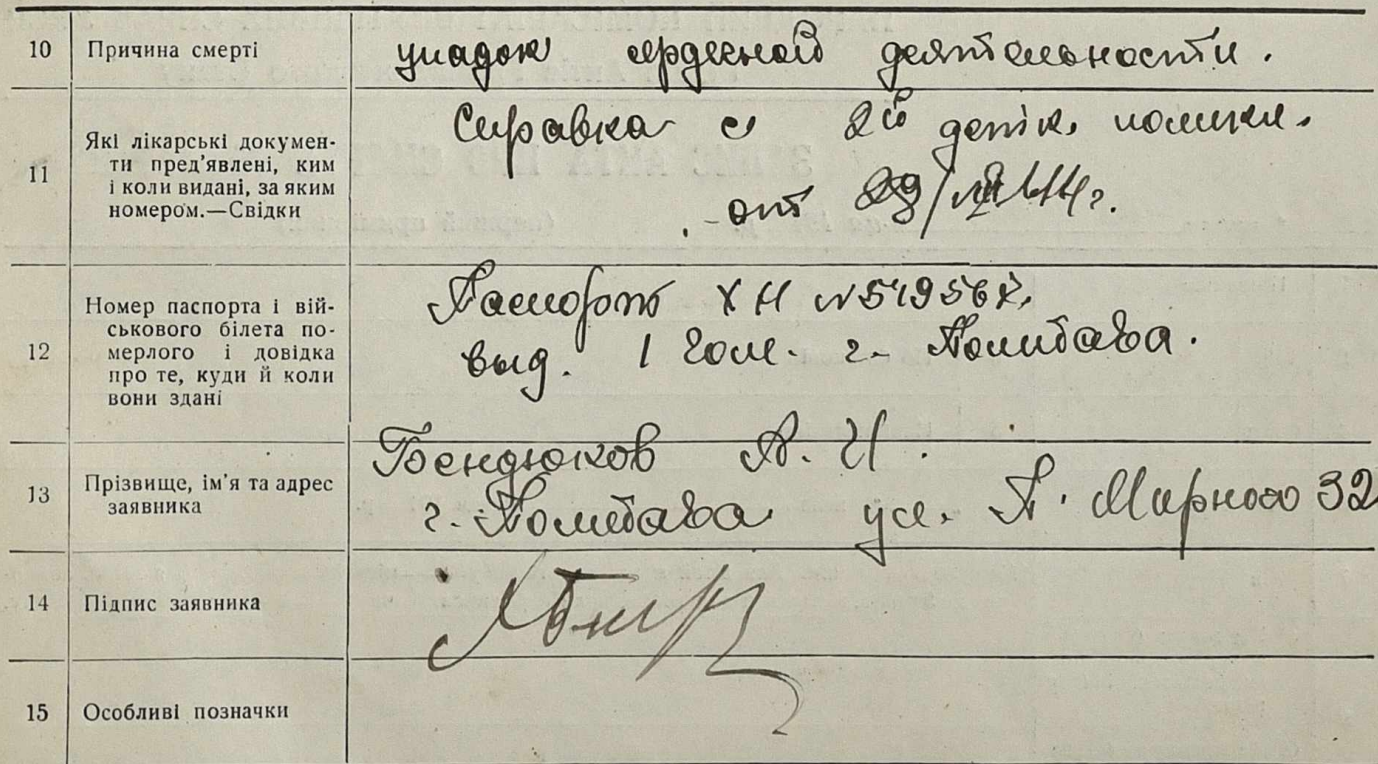 10 Причина смерті упадок сердечной деятельности.
11 Які лікарські докумен-
ти пред'явлені, ким
і коли видані, за яким
номером.—Свідки
Справка с 2й детск. поликл.
от
12 Номер паспорта і вій-
ськового білета по-
мерлого і довідка
про те, куди й коли
вони здані
Паспорт
выд. 1 Гом. г. Полтава.
13 Прізвище, ім'я та адрес
заявника
Бендюков А. И.
г. Полтава ул. П. Мирного 32
14 Підпис заявника
15 Особливі позначки